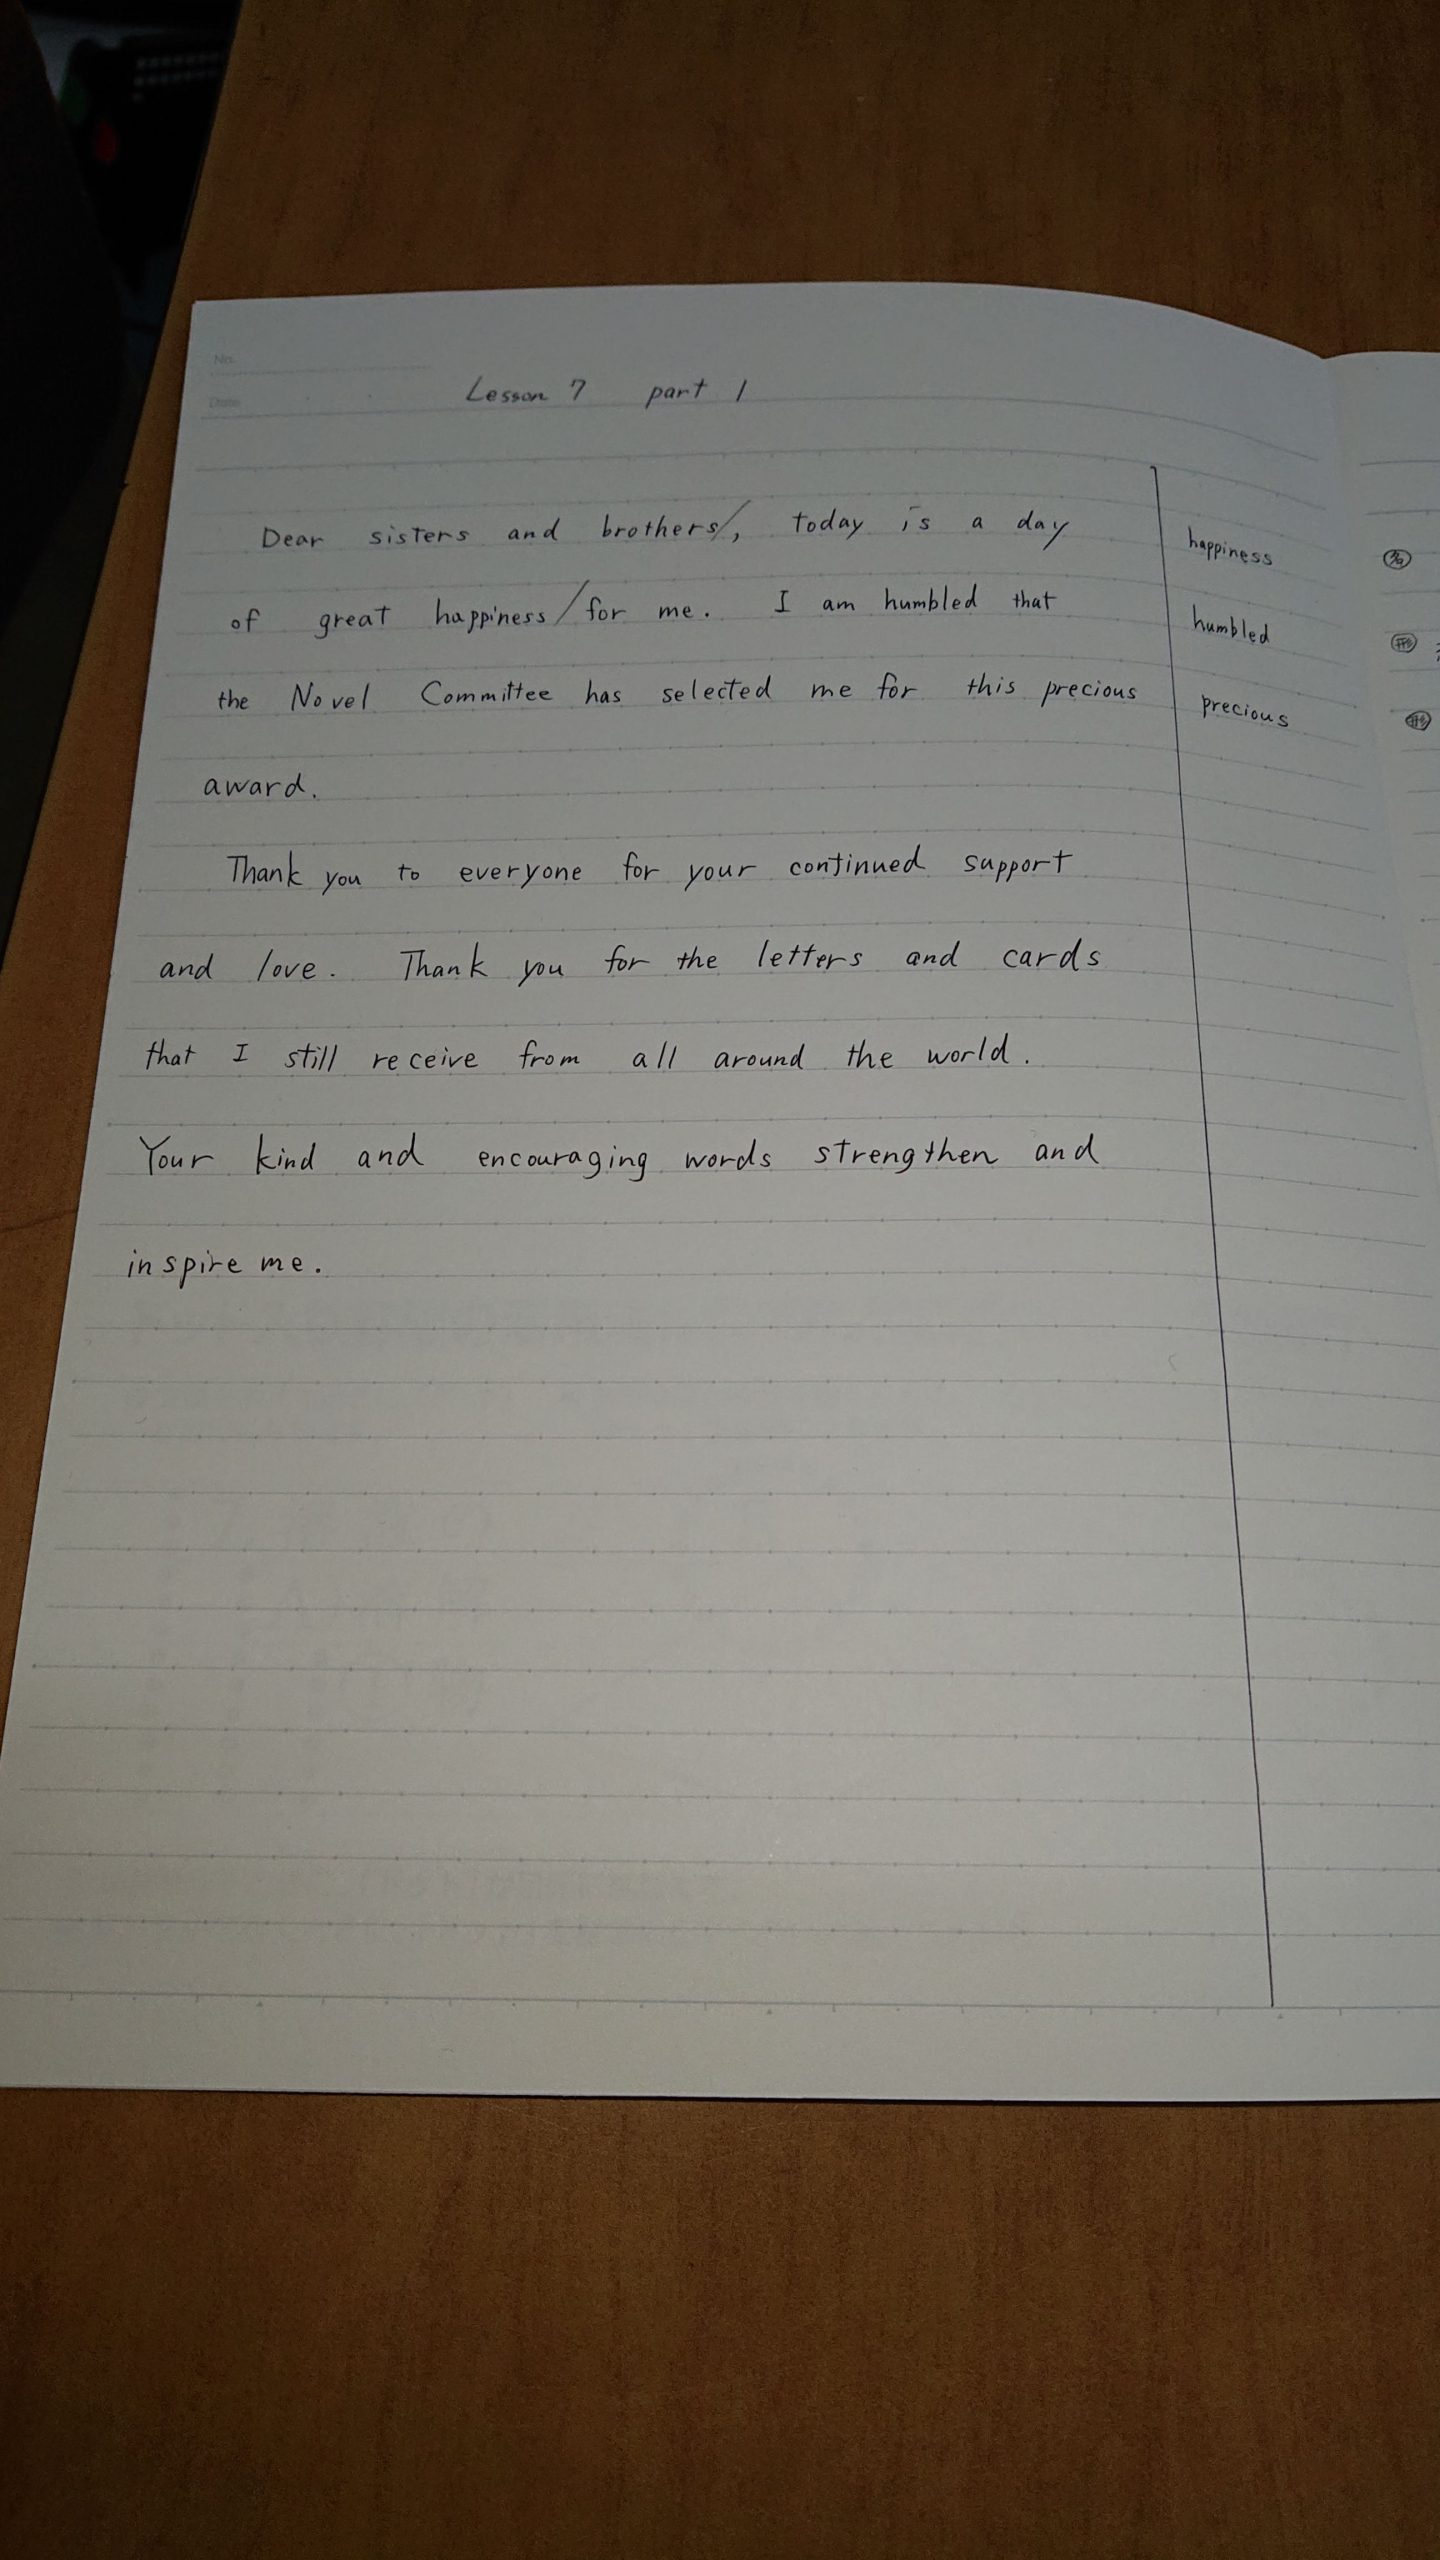 No.
Date
Lesson 7 part 1
Dear sisters and brothers/, today is a day
of great happiness/for me. I am humbled that
the Novel Committee has selected me for this precious
award.
Thank you to everyone for your continued support
and love. Thank you for the letters and cards
that I still receive from all around the world.
Your kind and encouraging words strengthen and
inspire me.
happiness
humbled
precious
名
形
形